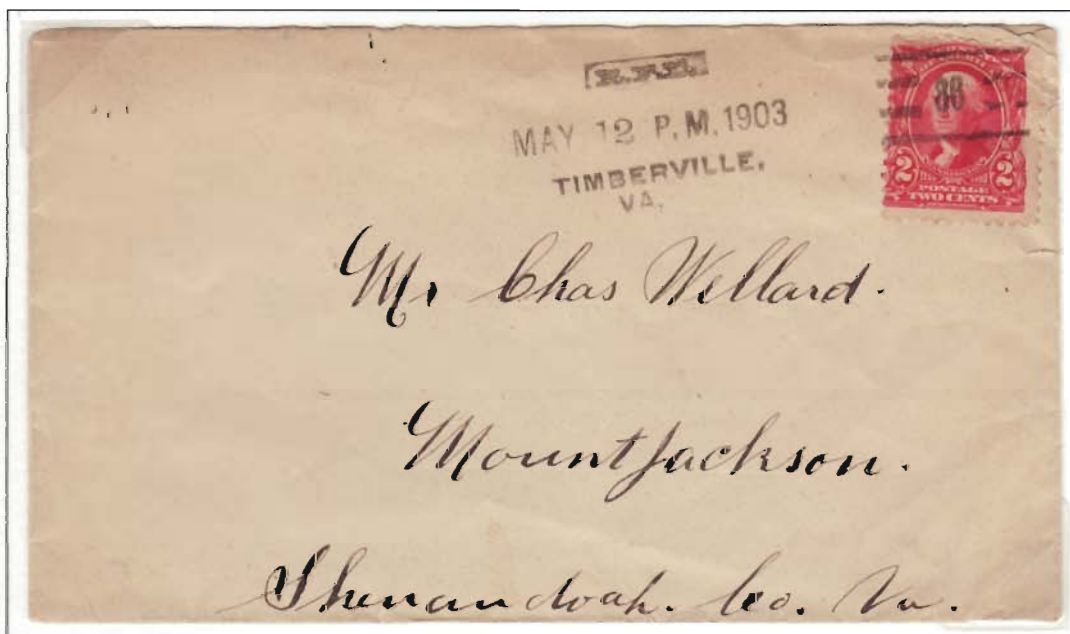 R.F.D.
MAY 12 P.M. 1903
TIMBERVILLE,
VA.
2 2
POSTAGE
TWO CENTS
Mr Chas Wellard.
Mount Jackson.
Shenandoah. Co. Va.